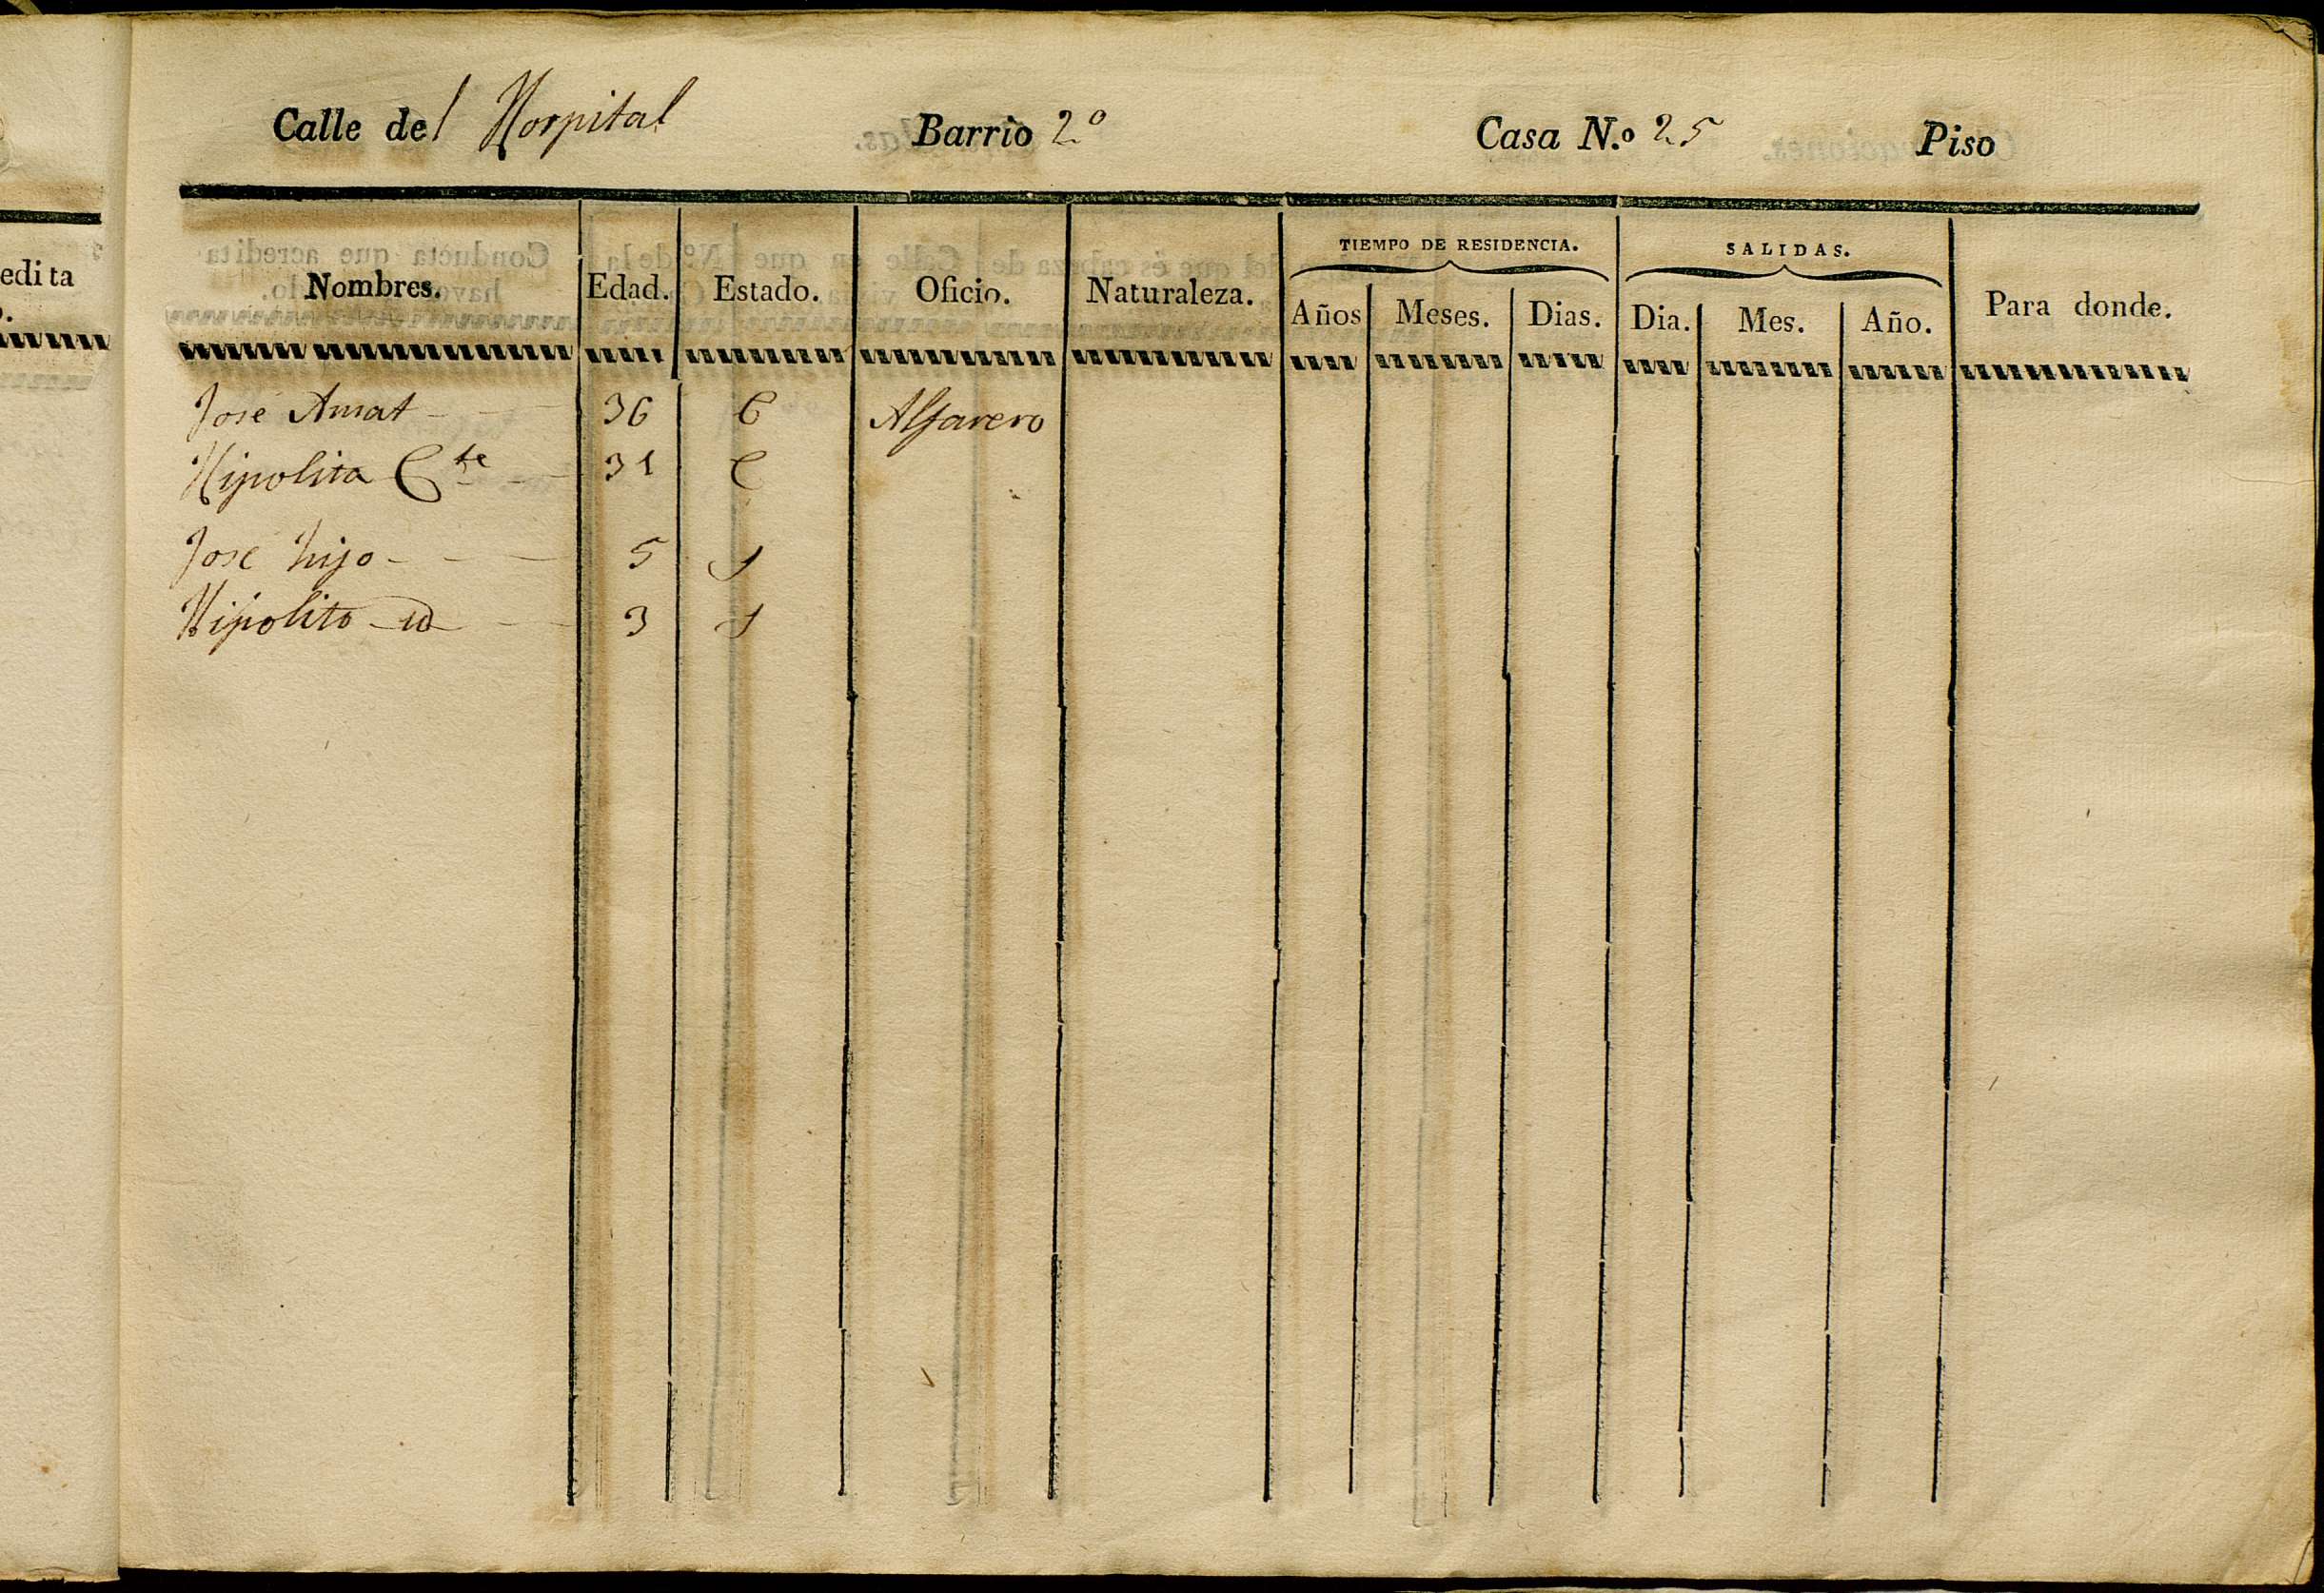 Calle del Hospital Barrio 2º Casa N.º 25 Piso
edita
TIEMPO DE RESIDENCIA. SALIDAS.
Nombres. Edad. Estado. Oficio. Naturaleza. Años Meses. Dias. Dia. Mes. Año. Para donde.
José Amat - - - 36 C Alfarero
Hipolita C.te - - 31 C
José hijo - - - 5 S
Hipolito id - - 3 S